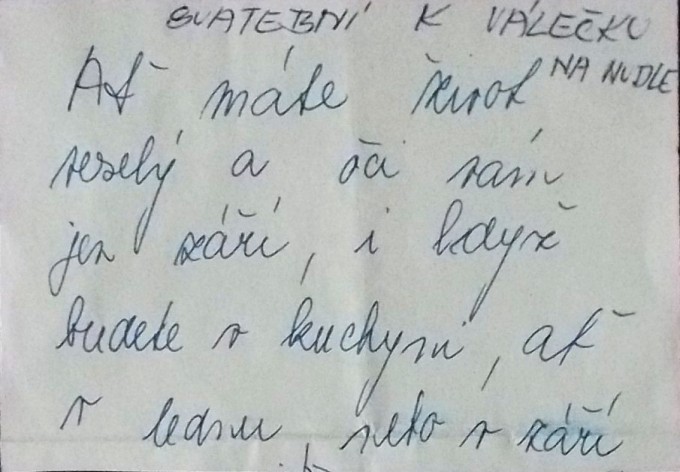 SVATEBNÍ K VÁLEČKU
NA NUDLE
Ať máte život
veselý a oči vám
jen září, i když
budete v kuchyni, ať
v lednu nebo v září